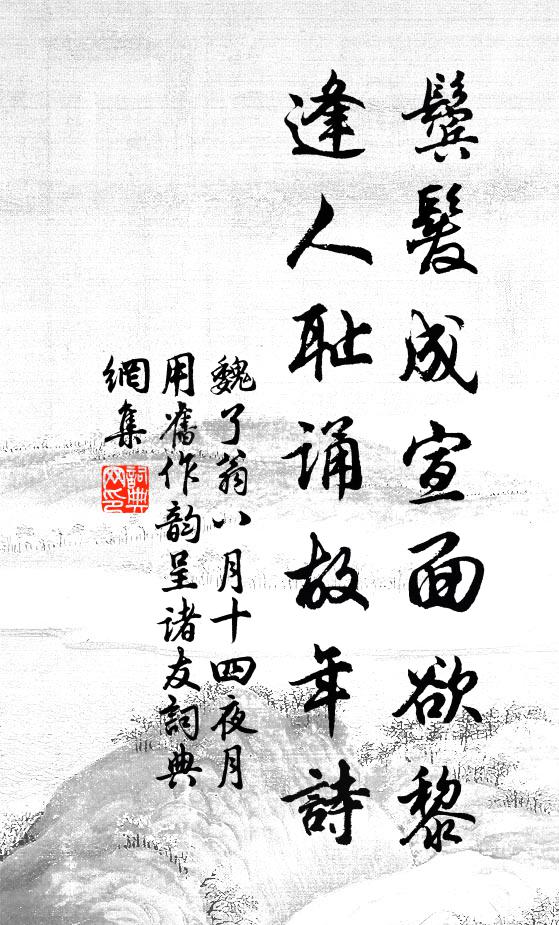 鬢髮成宣面欲黎
逢人耻誦故年詩
魏了翁八月十四夜月
用舊作韵呈诸友詞典
網集
詞典
网印